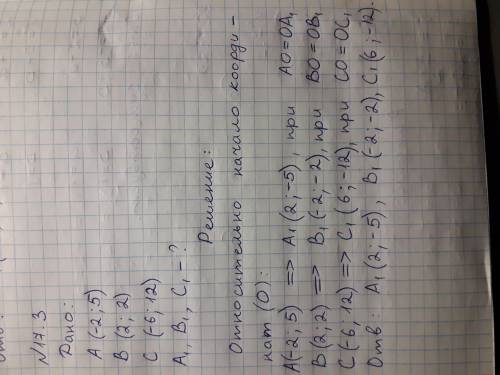 Отв:
N17.3
Дано:
A (-2; 5)
B (2; 2)
C (-6; 12)
A₁, B₁, C₁ - ?
Решение:
Относительно начало коорди-
нат (O):
A(-2; 5) => A₁(2; -5), при AO=OA₁
B(2; 2) => B₁(-2; -2), при BO=OB₁
C(-6, 12) => C₁(6; -12), при CO=OC₁
Отв: A₁(2; -5), B₁(-2; -2), C₁(6; -12).